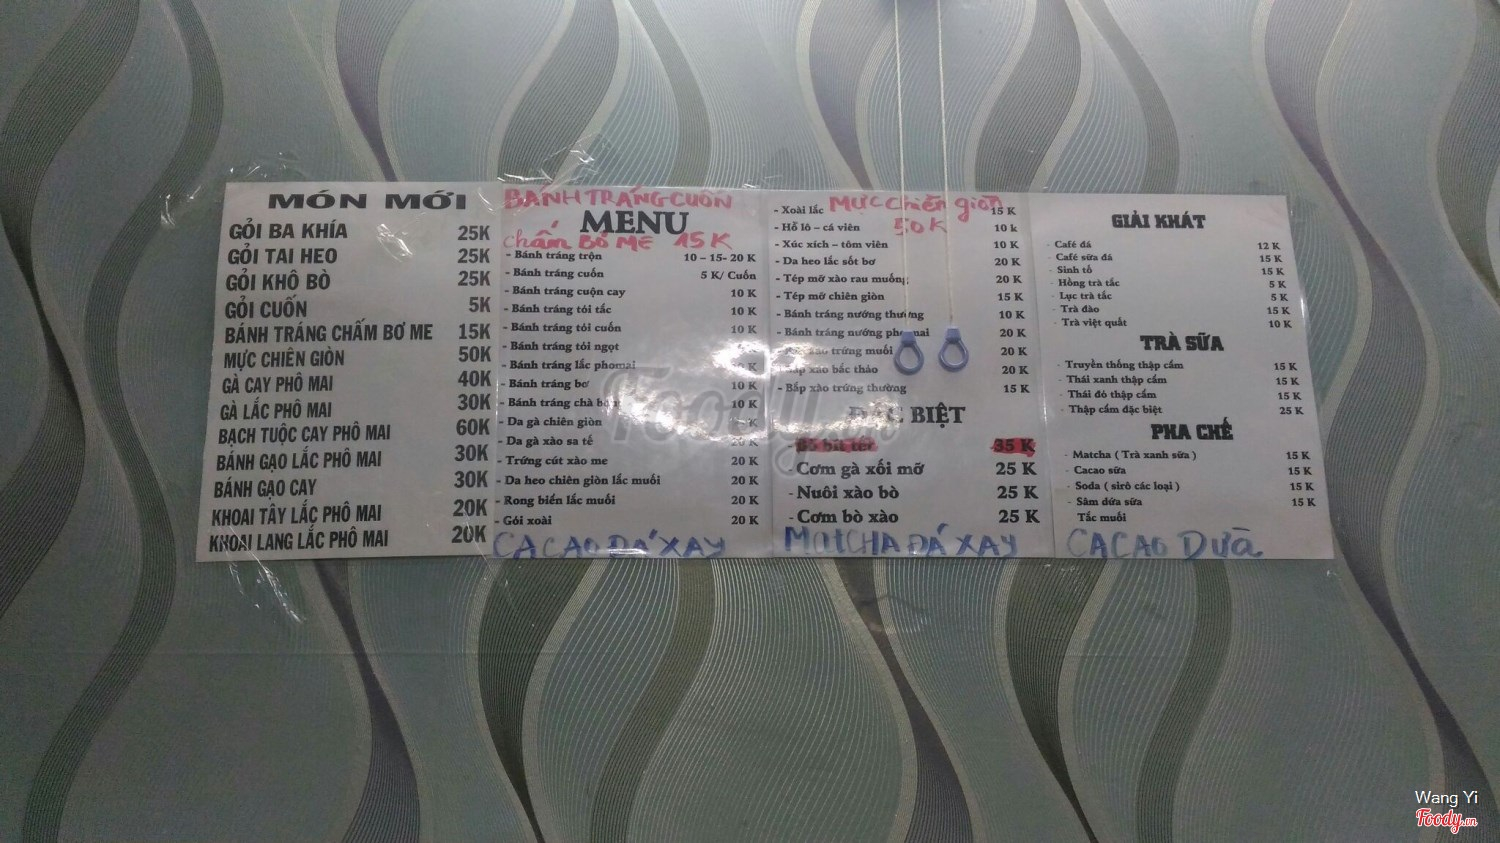 MÓN MỚI
GỎI BA KHÍA 25K
GỎI TAI HEO 25K
GỎI KHÔ BÒ 25K
GỎI CUỐN 5K
BÁNH TRÁNG CHẤM BƠ ME 15K
MỰC CHIÊN GIÒN 50K
GÀ CAY PHÔ MAI 40K
GÀ LẮC PHÔ MAI 30K
BẠCH TUỘC CAY PHÔ MAI 60K
BÁNH GẠO LẮC PHÔ MAI 30K
BÁNH GẠO CAY 30K
KHOAI TÂY LẮC PHÔ MAI 20K
KHOAI LANG LẮC PHÔ MAI 20K
BÁNH TRÁNG CUỐN
MENU
chấm BƠ ME 15K
- Bánh tráng trộn 10 – 15- 20 K
- Bánh tráng cuốn 5 K/ Cuốn
- Bánh tráng cuộn cay 10 K
- Bánh tráng tỏi tắc 10 K
- Bánh tráng tỏi cuốn 10 K
- Bánh tráng tỏi ngọt
- Bánh tráng lắc phomai
- Bánh tráng bơ 10 K
- Bánh tráng chà 10 K
- Da gà chiên giòn
- Da gà xào sa tế 20 K
- Trứng cút xào me 20 K
- Da heo chiên giòn lắc muối 20 K
- Rong biển lắc muối 20 K
- Gỏi xoài 20 K
CACAO ĐÁ XAY
- Xoài lắc 15 K
MỰC chiên giòn
50K
- Hồ lô – cá viên 10 k
- Xúc xích – tôm viên 10 K
- Da heo lắc sốt bơ 20 K
- Tép mỡ xào rau muống 20 K
- Tép mỡ chiên giòn 15 K
- Bánh tráng nướng thường 10 K
- Bánh tráng nướng 20 K
xào trứng muối 20 K
xào bắc thảo 20 K
- Bắp xào trứng thường 15 K
ĐẶC BIỆT
- Bò bít tết 35 K
- Cơm gà xối mỡ 25 K
- Nuôi xào bò 25 K
- Cơm bò xào 25 K
MatCHA ĐÁ XAY
GIẢI KHÁT
- Café đá 12 K
- Café sữa đá 15 K
- Sinh tố 15 K
- Hồng trà tắc 5 K
- Lục trà tắc 5 K
- Trà đào 15 K
- Trà việt quất 10 K
TRÀ SỮA
- Truyền thống thập cẩm 15 K
- Thái xanh thập cẩm 15 K
- Thái đỏ thập cẩm 15 K
- Thập cẩm đặc biệt 25 K
PHA CHẾ
- Matcha ( Trà xanh sữa ) 15 K
- Cacao sữa 15 K
- Soda ( sirô các loại ) 15 K
- Sâm dứa sữa 15 K
Tắc muối
CACAO DỪA
Foody.vn
Wang Yi
Foody.vn